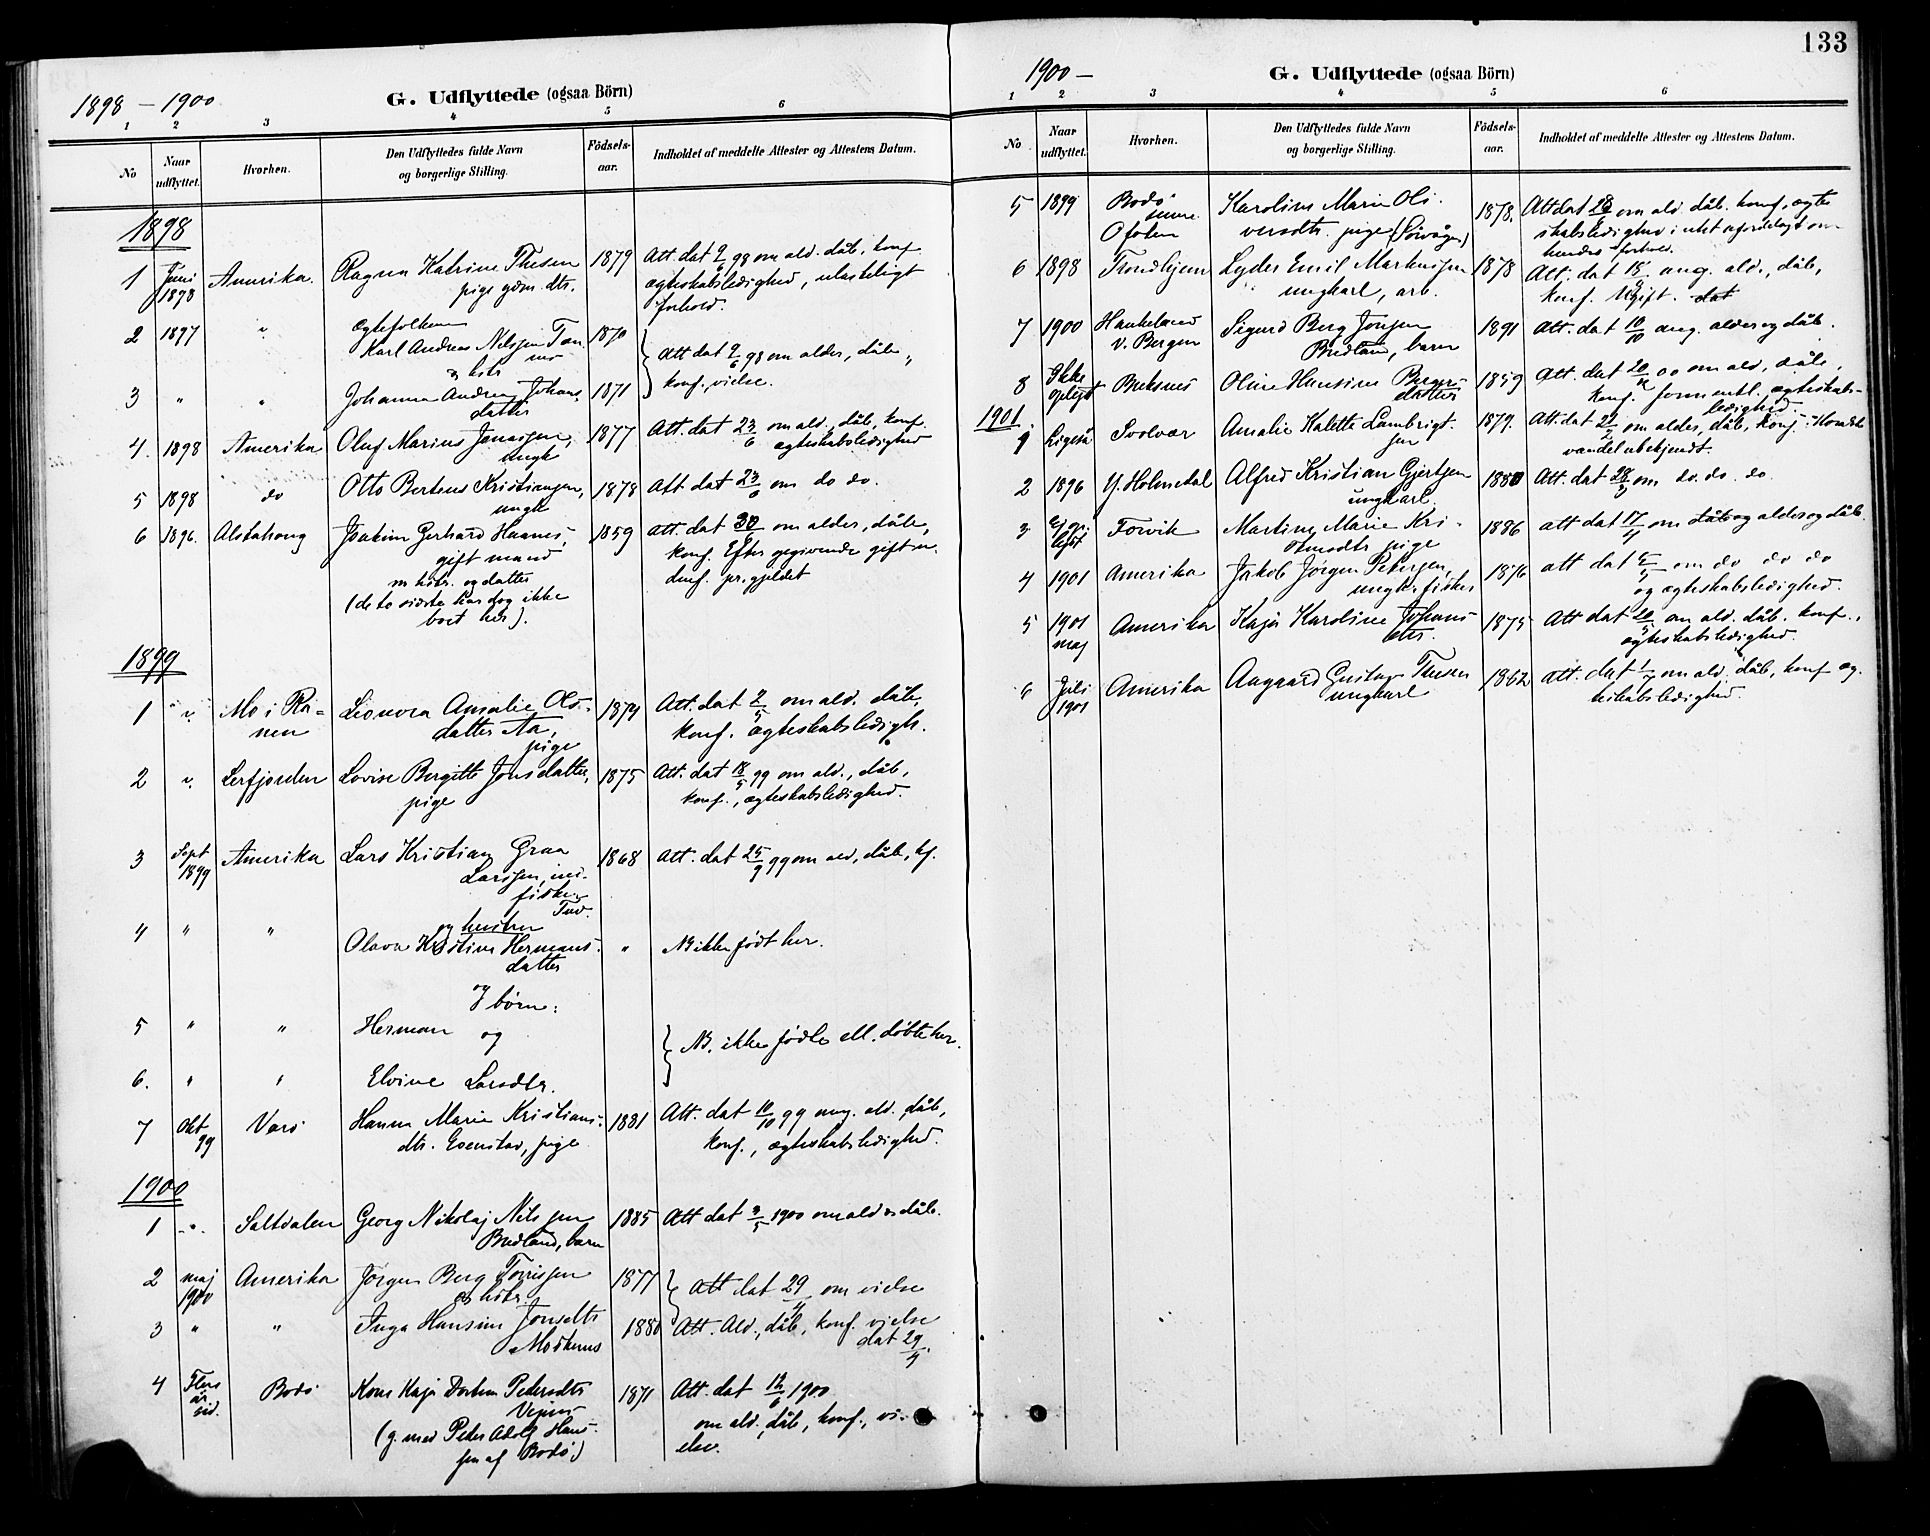 133
1898 – 1900
G. Udflyttede (ogsaa Börn)
1 2 3 4 5 6
No
Naar udflyttet.
Hvorhen.
Den Udflyttedes fulde Navn og borgerlige Stilling.
Födsels-aar.
Indholdet af meddelte Attester og Attestens Datum.
1898
1 Juni 1898 Amerika. Ragna Katrine Thesen 1879 Att. dat 2/6 98 om ald. dåb, konf.
pige gdm. dtr. ægteskabsledighed, ulasteligt
forhold.
2 1897 " Ægtefolkene
Karl Andreas Nilssen 1870 Att dat 9/6 98 om alder, dåb,
& hstr konf., vielse.
3 " " Johanna Andrea Johans- 1871
datter
4. 1898 Amerika Oluf Marius Jensen, 1877 Att. dat 23/6 om ald., dåb, konf.
ungk ægteskabsledighed
5 1898 do Otto Berteus Kristiansen, 1878 Att dat 23/6 om do do.
ungk
6 1896. Alstahoug Joakim Gerhard Haanes, 1859 Att. dat 30/6 om alder, dåb,
gift mand konf. Efter opgivende gift m.
m hstr. og datter pr.gjeldet
(de to sidste har dog ikke
boet her).
1899
1 " Mo i Ra- Leonora Amalie Ols- 1879 Att. dat 2/5 om ald. dåb,
nen datter Aa, konf. ægteskabsledigh.
pige
2 " Lerfjorden Lovise Bergitte Jonsdatter, 1875 Att. dat 18/5 99 om ald., dåb,
pige konf., ægteskabsledighed.
3 Sept 1899 Amerika Lars Kristian Graa 1868 Att. dat 25/9 99 om ald, dåb, kf.
Larssen, ind.
fisker
4 " " og hustru
Olava Kristine Hermans- " NB ikke født her.
datter
og
børn:
5 " " Herman og NB. ikke fødte ell. døbte her.
6. " " Elvine Larsdtr.
7 Okt 99 Værø Hanna Marie Kristians- 1881 Att. dat 10/10 99 ang. ald. dåb,
dtr. pige konf., ægteskabsledighed.
1900
1 Saltdalen Georg Nikolaj Nilssen 1885 Att dat 3/5 1900 om ald og dåb.
Bredland, barn
2 maj 1900 Amerika Jørgen Berg Torrissen 1877 Att dat 29/4 om vielse
& hstr.
3 " " Inga Hansine Jonsdtr 1880 Att. Ald., dåb, konf. vielse
dat 29/4.
4 Flere år sid. Bodø Kone Kaja Dortea Pedersdtr 1871 Att. dat 12/6 1900
(g. med Peder Adolf Han- om ald., dåb, konf., vi-
sen af Bodø) else.
1900 –
G. Udflyttede (ogsaa Börn)
1 2 3 4 5 6
No
Naar udflyttet.
Hvorhen.
Den Udflyttedes fulde Navn og borgerlige Stilling.
Födsels-aar.
Indholdet af meddelte Attester og Attestens Datum.
5 1899 Bodø Karoline Marie Oli- 1878. Att dat om ald. dåb. konf., ægte
senere Ofoten versdtr. pige (Sörvågen) skabsledighed, intet ufordelagt om
hendes forhold.
6 1898 Trondhjem Lyder Emil Martinssen 1878 Att. dat 18/9 ang. ald., dåb,
ungkarl, arb. konf. Ugift. dat
7 1900 Haukeland Sigurd Berg Jonsen 1891 Att. dat 10/10 ang. alder og dåb.
v. Bergen Bredland, barn
8 Ikke oplyst Buksnes Oline Hansine Berger- 1859 Att. dat 20/12 00 om ald, dåb,
datter konf. formentl. ægteskabs-
ledighed.
1901
1 Ligeså Svolvær Amalie Kalette Lambrigt- 1879. Att. dat 22/2 om alder, dåb, konf. Hendes
sen vandel ubekjendt.
2 1896 Y. Holmedal Alfred Kristian Gjertsen 1880 Att. dat 28/3 om do. do. do.
ungkarl.
3 Forvik Martine Marie Kri- 1886 att dat 17/4 om dåb og alder og dåb.
pige
4 1901 Amerika Jakob Jørgen Petersen, 1876 att dat om do do do
ungk., fisker og ægteskabsledighed.
5 1901 maj Amerika Kaja Karoline Johans- 1875 Att dat 20/5 om ald. dåb. konf.,
dtr. ægteskabsledighed.
6 Juli 1901 Amerika Aagaard Gustav Thesen 1862 att. dat 1/7 om ald. dåb, konf æg-
ungkarl teskabsledighed